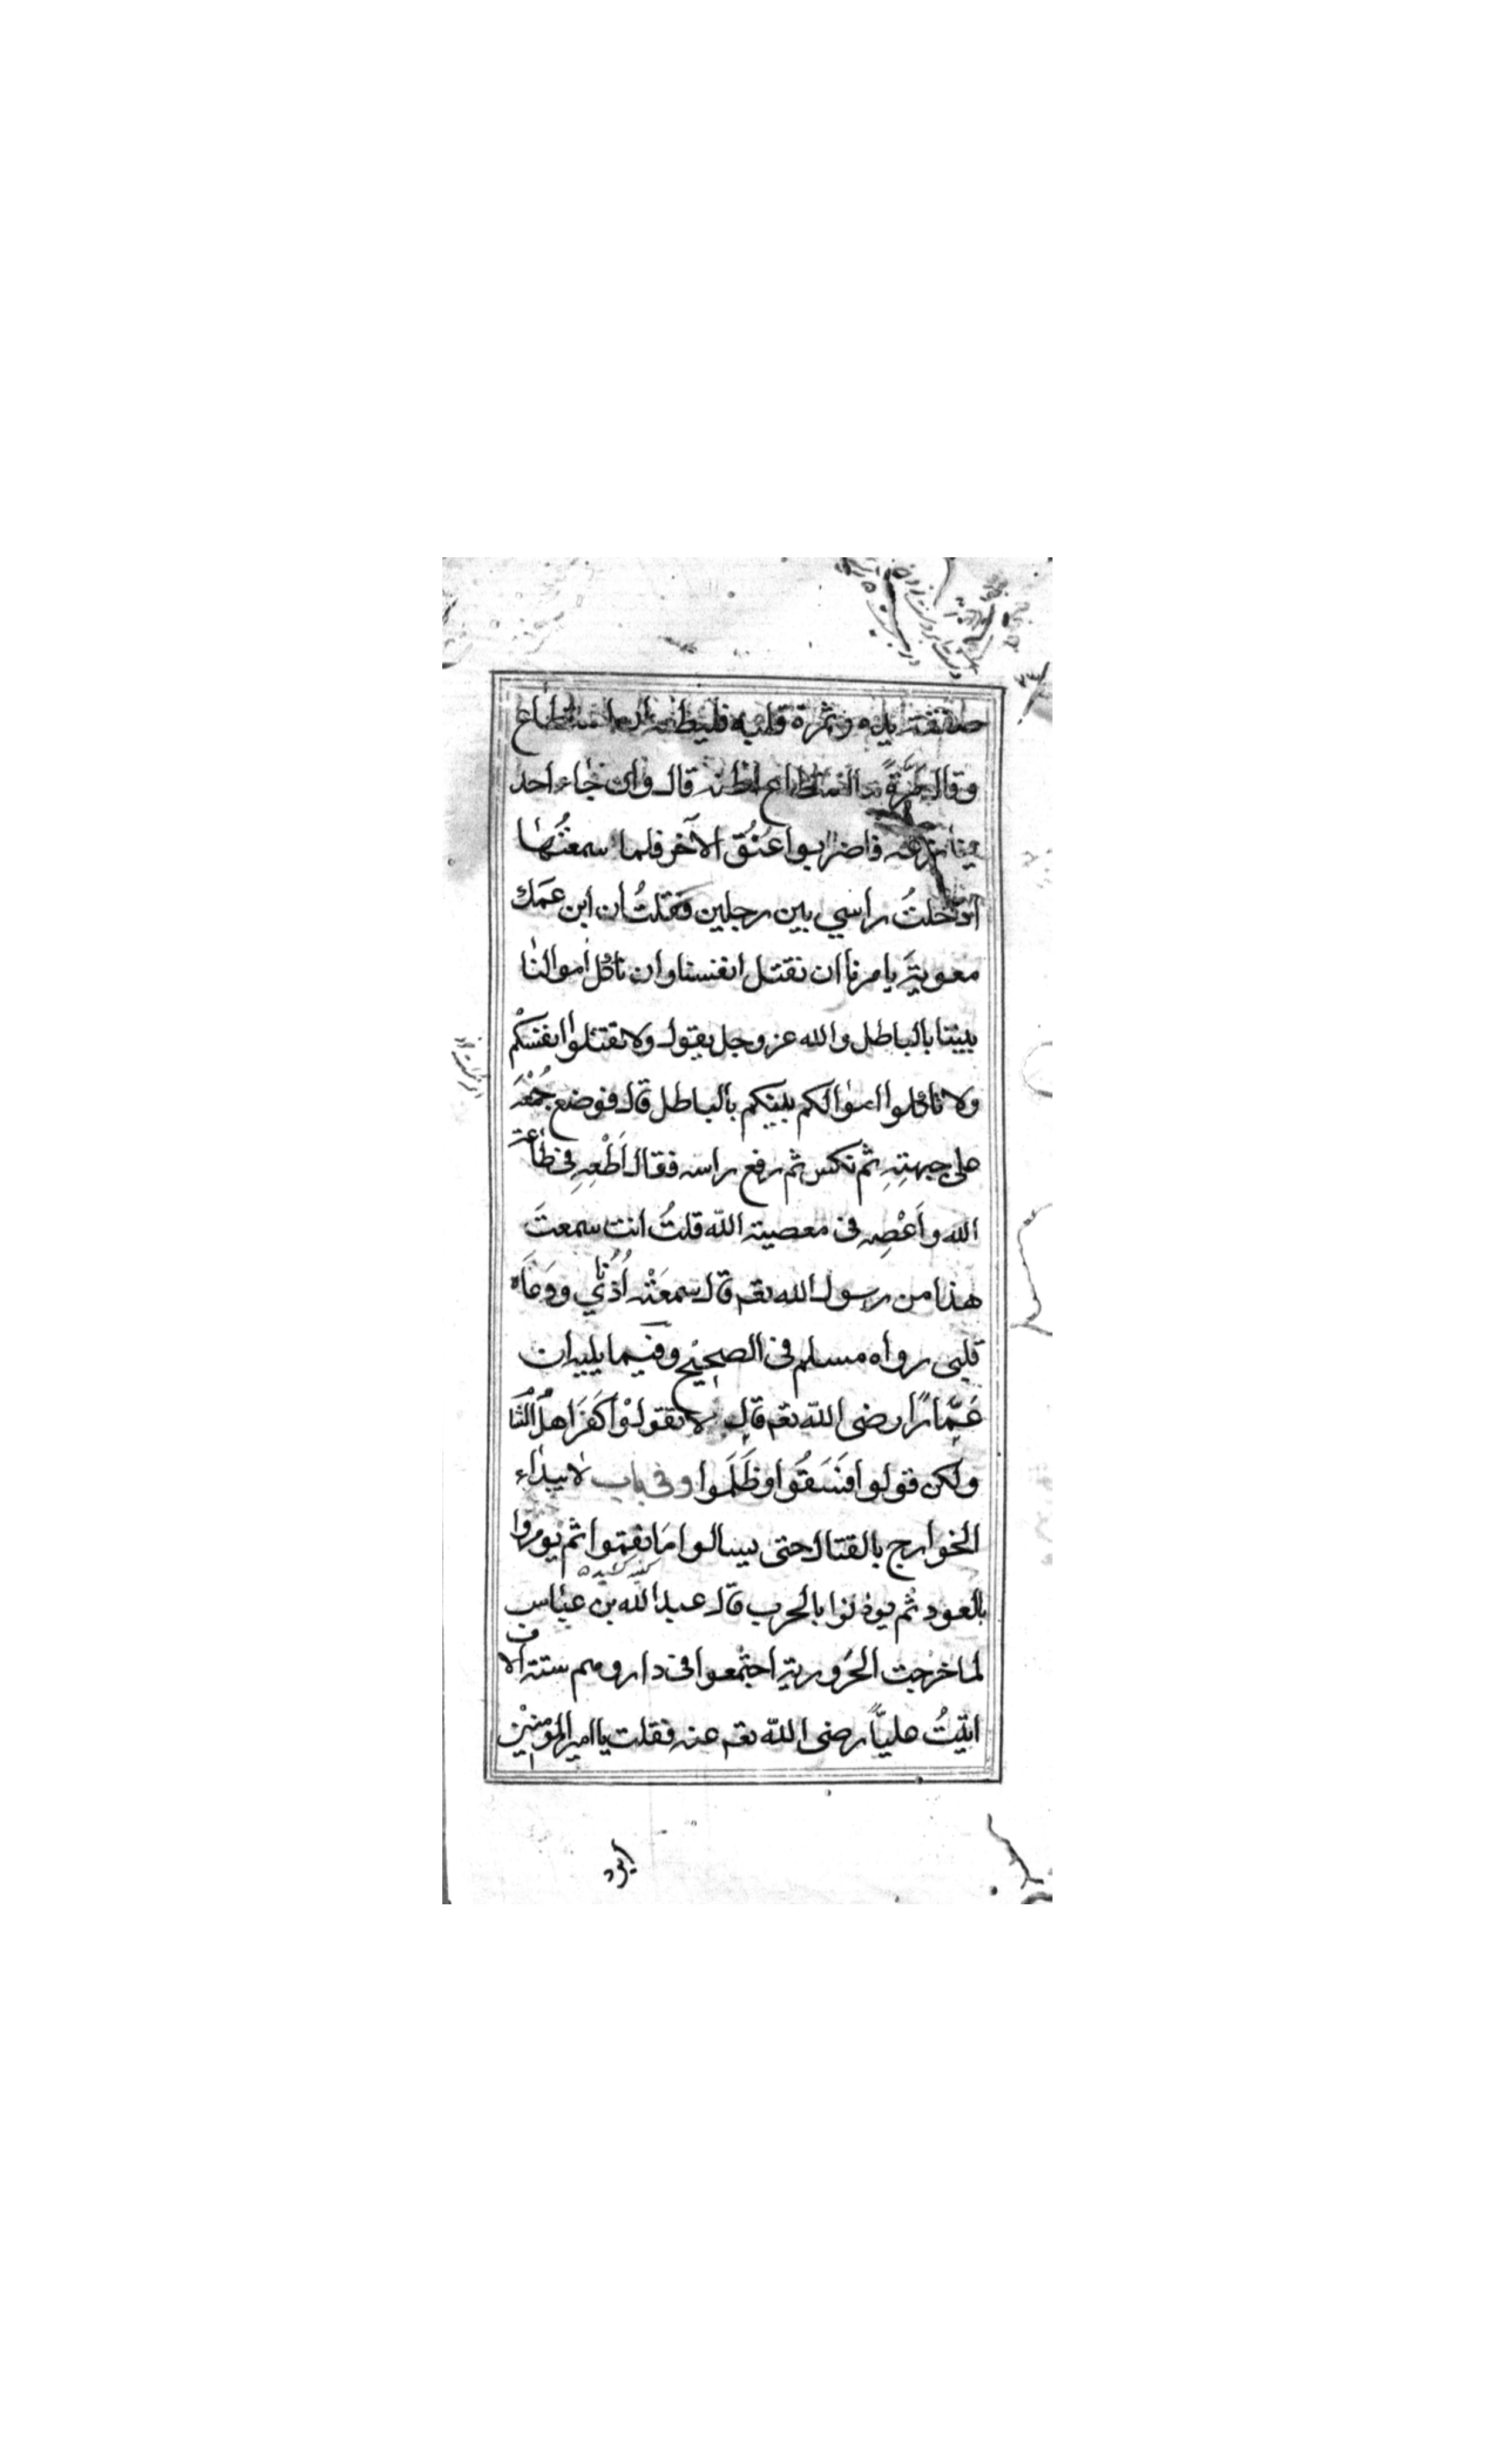 صفقة يده وثمرة قلبه فليطعه ان استطاع
وقال مَرَّةً ما استطاع اطنه قال وان جاء احد
ينازعه فاضربوا عُنُقَ الآخر فلما سمعتُها
ادخلتُ راسي بين رجلين فقلتُ ان ابن عمك
معوية يامرنا ان نقتل انفسنا وان ناكل اموالنا
بيننا بالباطل والله عز وجل يقول ولا تقتلوا انفسكم
ولا تاكلوا اموالكم بينكم بالباطل قال فوضع جُمْعَه
على جبهتِهِ ثم نكس ثم رفع راسه فقال اَطْعِهِ في طاعة
الله واَعْصِه في معصية الله قلتُ انت سمعتَ
هذا من رسول الله تعم قال سمعَتْه اُذُناي ووَعَاه
قلبى رواه مسلم فى الصحيح وفيما يليه ان
عَمَّارًا رضى الله تعم قال لا تقولُوْا كَفَرَ اهلُ الشا
ولكن قولوا فَسَقُوا وظَلَمُوا وفى باب لا يبداء
الخوارج بالقتال حتى يسالوا مَا نقِمُوا ثم يومروا
بالعود ثم يوذنوا بالحرب قال عبد الله بن عباس
لما خرجت الحَرُورية اجتمعوا فى دار وهم ستة الاف
اتيتُ عليّاً رضى الله تعم عنه فقلت يا امير المؤمنين
ابرد